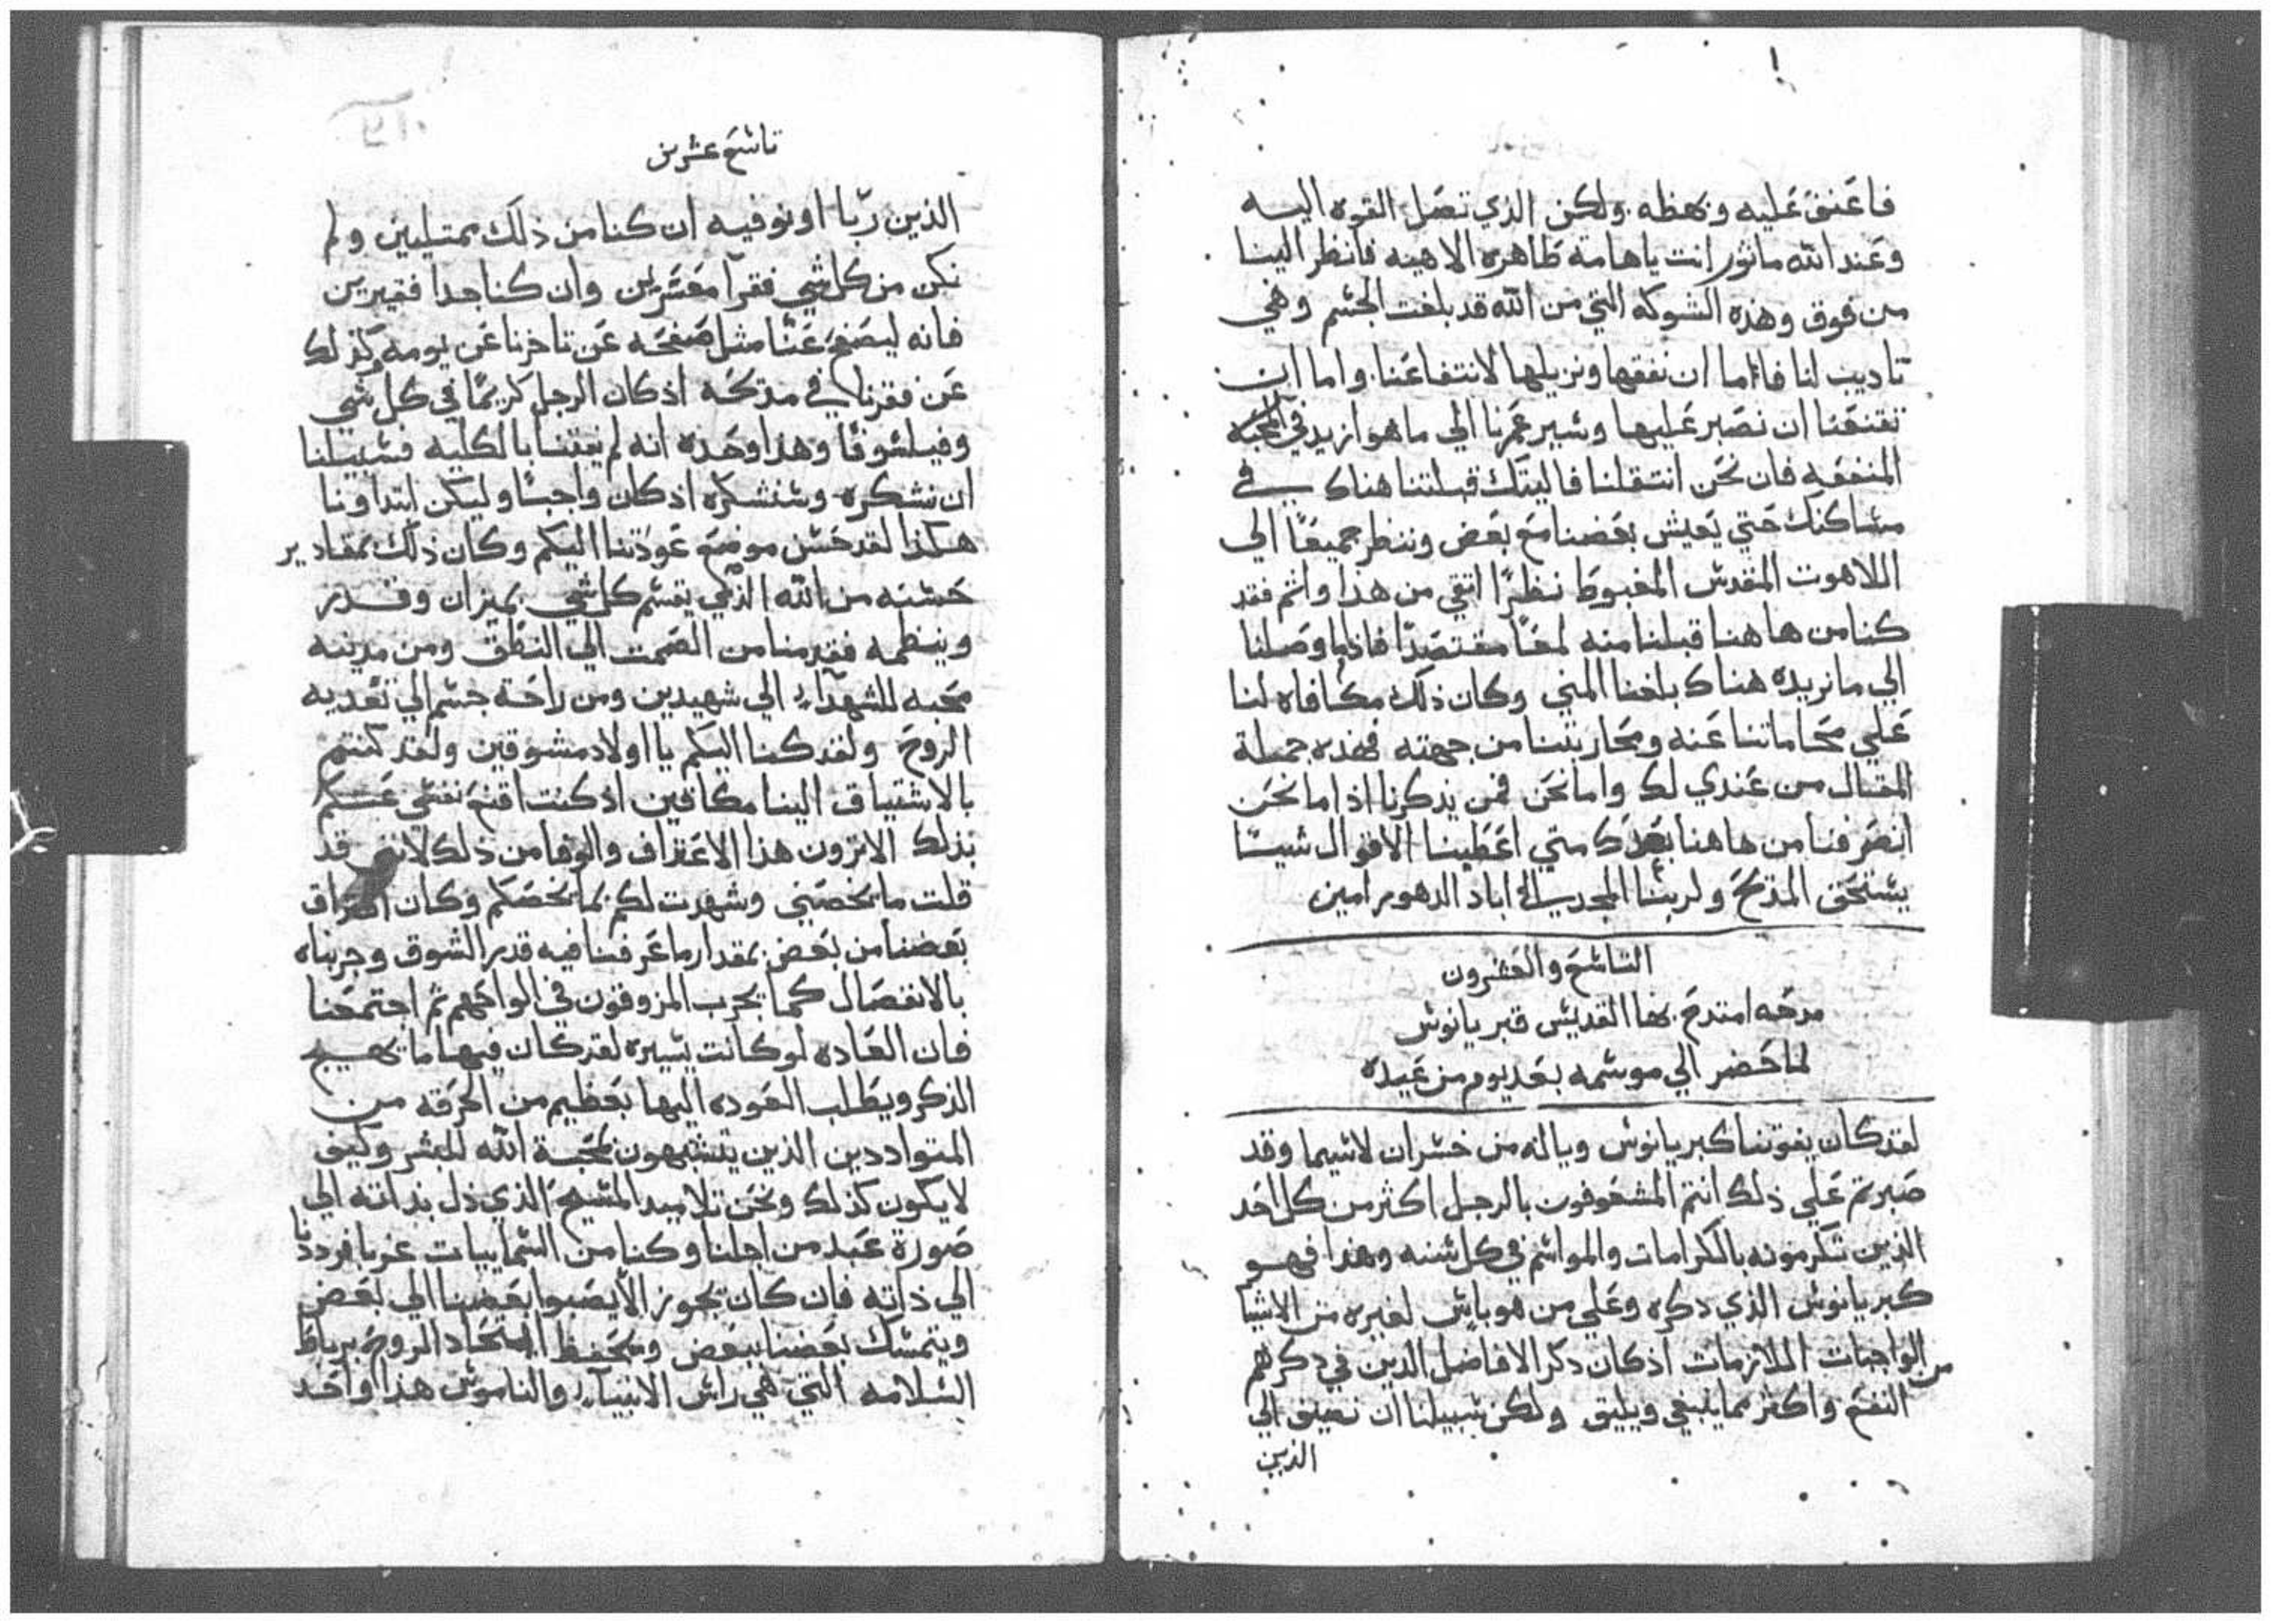 فاعنق عليه وبهظه ولكن الذي تصل القوه اليه
وعند الله ماثور انت ياهامة طاهره الاهيه فانظر الينا
من فوق وهذه الشوكه التي من الله قد بلغت الجسم وهي
تاديب لنا فاما ان نفقها ونزيلها لانتفاعنا واما ان
تقنعنا ان نصبر عليها وسير عمرنا الي ما هو ازيد في المحبه
فان نحن انتقلنا فاليتك قبلتنا هناك في
مساكنك حتي يعيش بعضنا مع بعض وننظر جميعًا الي
اللاهوت المقدس المغبوط نظرًا انقي من هذا واتم فقد
كنا من هاهنا قبلنا منه لمعًا مقتصدًا فاذاما وصلنا
الي ما نريده هناك بلغنا المني وكان ذلك مكافاه لنا
علي محاماتنا عنه ومحاربتنا من جهته فهذه جملة
المقال من عندي لك واما نحن فمن يذكرنا اذا ما نحن
انصرفنا من هاهنا بعدك متي اعطينا الاقوال شيًا
يستحق المدح ولربنا المجد الي اباد الدهور امين
التاسع والعشرون
مدحه امتدح بها القديس قبريانوس
لما حضر الي موسمه بعد يوم من عيده
لقد كان يفوتنا كبريانوس وياله من خسران لاسيما وقد
صبرتم علي ذلك انتم المشغوفون بالرجل اكثر من كل احد
الذين تكرمونه بالكرامات والمواسم في كل سنه وهذا فهو
كبريانوس الذي دكره وعلي من هو باس لغيره من الاشيا
من الواجبات الملازمات اذ كان دكر الافاضل الدين في دكرهم
النفع واكثر مما ينبغي ويليق ولكن سبيلنا ان نضيف الي
الذين
تاسع عشرين
الذين ربّا او نوفيه ان كنا من ذلك ممتليين ولم
نكن من كل شي فقرآ معسرين وان كنا جدا فقيرين
فانه ليصفح عنّا مثل صفحه عن تاخرنا عن يومه وكذلك
عن فقرنا في مدحه اذ كان الرجل كريمًا في كل شي
وفيلسوفًا وهذا وحده انه لم يفتنا بالكليه فسبيلنا
ان نشكره وسنشكره اذ كان واجبًا وليكن ابتداونا
هكذا لقد حسن موضع عودتنا اليكم وكان ذلك بمقادير
حسنه من الله الذي يقسم كل شي بميزان وقدر
وينظمه فقدمنا من الصمت الي النطق ومن مدينه
محبه للشهدآء الي شهيدين ومن راحة جسم الي تغديه
الروح ولقد كنا اليكم يا اولاد مشوقين ولقد كنتم
بالاشتياق الينا مكافين اذ كنت اقنع نفسي عنكم
بذلك الاترون هذا الاعتراف والوفا من ذلك لانني قد
قلت ما يخصني وشهدت لكم بما يخصكم وكان افتراق
بعضنا من بعض بمقدار ما عرفنا فيه قدر الشوق وجربناه
بالانفصال كما يجرب المزوقون في الواحهم ثم اجتمعنا
فان العاده لو كانت يسيره لقد كان فيها ما يهيج
الذكر ويطلب العوده اليها بعظيم من الحرقه من
المتواددين الذين يتشبهون بمحبة الله للبشر وكيف
لا يكون كذلك ونحن تلاميد المسيح الذي ذل بذاته الي
صورة عبد من اجلنا وكنا من السماييات غربا فردنا
الي ذاته فان كان يجوز الا يصبوا بعضنا الي بعض
ويتمسك بعضنا ببعض ويحفظ اتحاد الروح برباط
السلامه التي هي راس الانبيآء والناموس هذا واحد